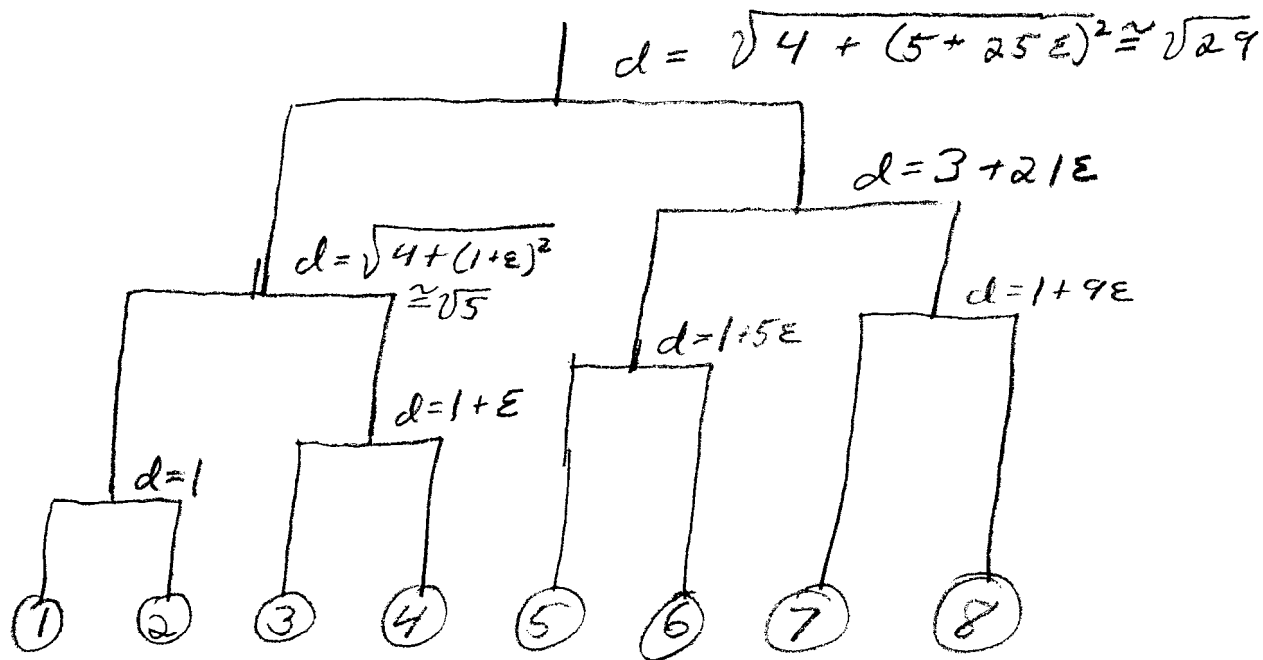 d = √4 + (5 + 25ε)² ≅ √29
d = 3 + 21ε
d = √4 + (1+ε)²
≅ √5
d = 1 + 9ε
d = 1 + 5ε
d = 1 + ε
d = 1
1 2 3 4 5 6 7 8